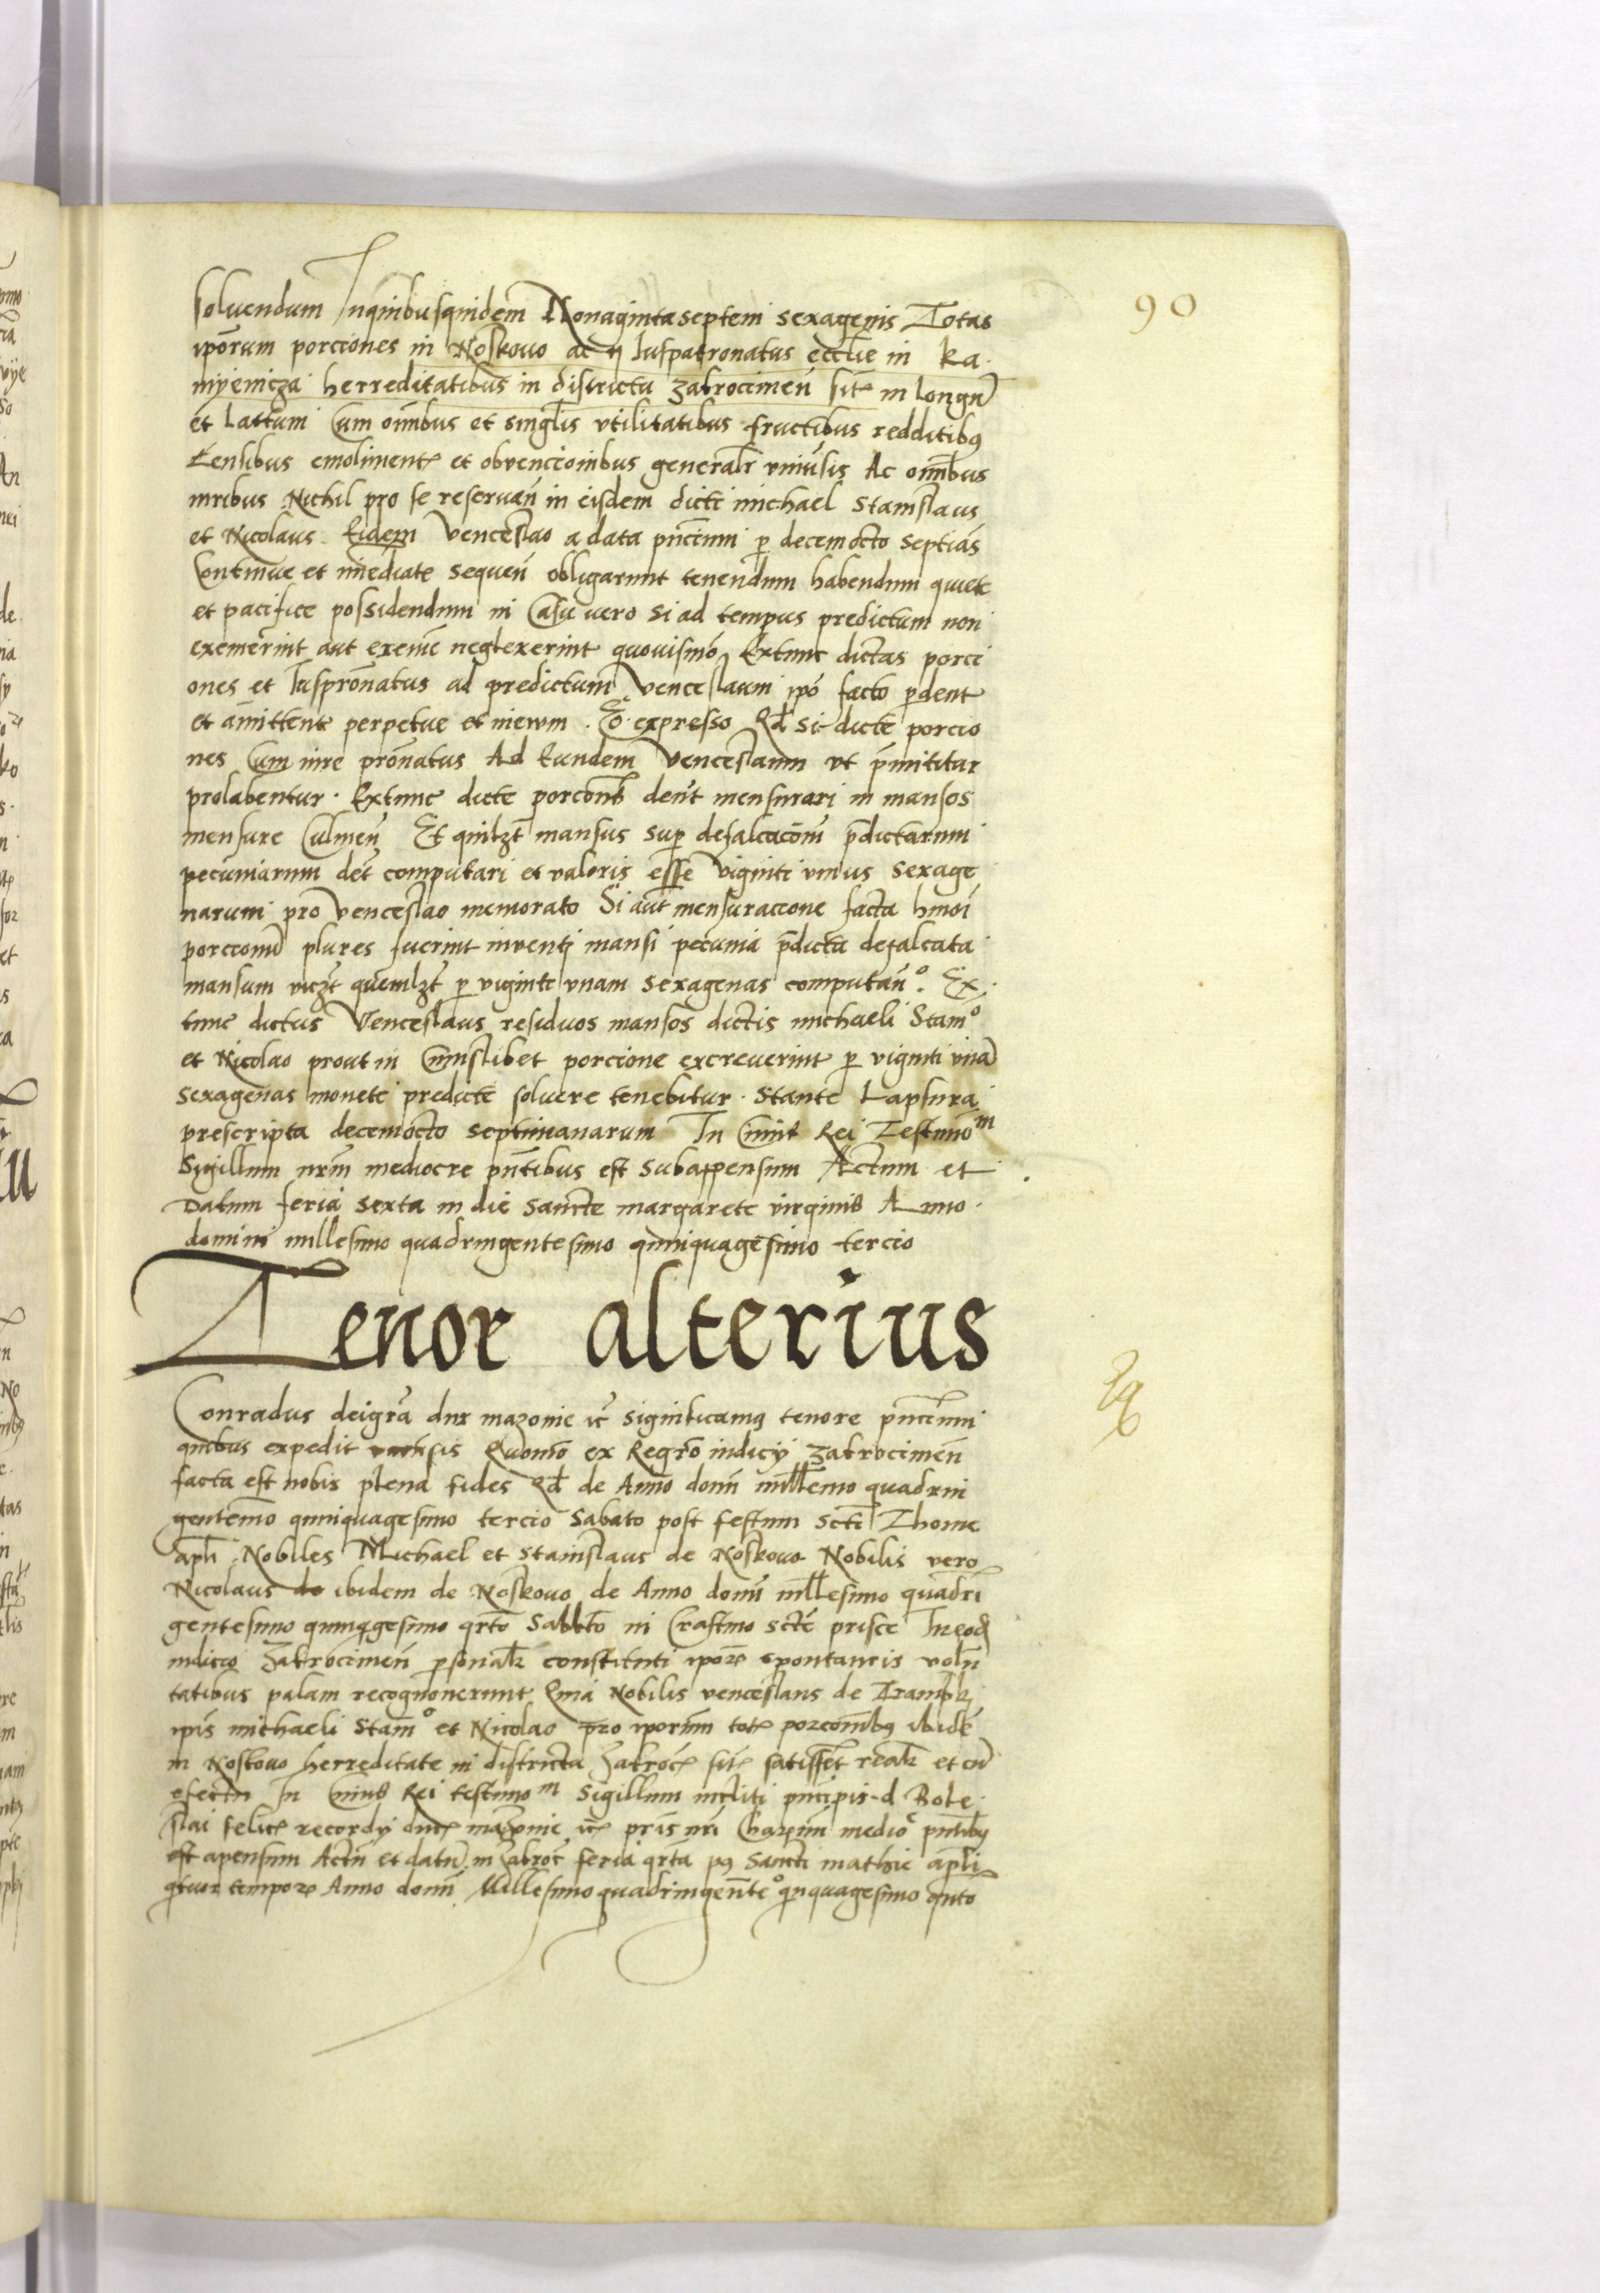 90
soluendum Inquibusquidem Nonagintaseptem sexagenis Totas
ipõrum porciones in Noskouo ac Iuspatronatus eccl̃ie in Ka
myenicza herreditatibus in districtu Zakrocimeñ sit in longũ
et lattum Cum oim̃bus et singl̃is vtilitatibus fructibus redditibꝯ
Censibus emoliment et obvencioinbus generalr̃ vniũsis Ac oim̃bus
iuribus Nichil pro se reseruañ in eisdem dicti michael Stanislaus
et Nicolaus Eidem Venceslao a data pñcium p decemocto septiãs
Continue et imediate sequeñ obligarunt tenendum habendum quiete
et pacifice possidendum in Casu vero si ad tempus predictum non
exemerint aut exeme neglexerint quouismõ Extunc dictas porci
ones et Iusprõnatus ad predictum Venceslaum ipõ facto pdent
et amittent perpetue et in ewm Eo expresso Qd si dicte porcio
nes Cum iure prõnatus Ad Eundem Venceslaum vt pmititur
prolabentur Extunc dicte porconẽs deñt mensurari in mansos
mensure Culmeñ Et quilzt mansus sup defalcacõm p̃dictarum
pecuniarum det computari et valoris esse viginti vnius sexage
narum pro Venceslao memorato Si aut mensuracione facta hmoi
porcionũ plures fuerint inventi mansi pecunia p̃dicta defalcata
mansum quemlzt p viginti vnam sexagenas computañº Ex
tunc dictus Venceslaus residuos mansos dictis michaeli Stamº
et Nicolao prout in Cuiuslibet porcione excreuerint p viginti vnã
sexagenas monete predicte soluere tenebitur Stante Lapsura
prescripta decemocto septimanarum In Cuius Rei Testimo m
Sigillum nrm̃ mediocre pñtibus est subappensum Actum et
Datum feria sexta in die Sancte margarete virginis Anno
domini millesimo quadringentesimo quinquagesimo tercio
Tenor alterius
Conradus deigrã dux mazouie ic̃ significamꝯ tenore pñcium
quibus expedit vniũsis Quomõ ex Regr̃o iudicij Zakrocimeñ
facta est nobis plena fides Qd de Anno domi millemo quadrin
gentemo quinquagesimo tercio Sabato post festum Scti Thome
apli Nobiles Michael et Stanislaus de Noskouo Nobilis vero
Nicolaus de ibidem de Noskouo de Anno domi millesimo quadri
gentesimo quinqgesimo qrto Sabbto in Crastino scte prisce In eod
iudicio Zakrocimeñ psonalr̃ constituti ipor spontaneis volũ
tatibus palam recognouerunt Quia Nobilis venceslaus de Trampk
ipis michaeli Stamº et Nicolao pro iporum tot porcombꝯ ibidẽ
in Noskouo herreditate in districtu Zakroc sit satisfet realr et cũ
efectu In Cuius Rei testimo m Sigillum incliti principis d Bole
slai felic recordy ducis mazouie ic pris nri Carrim̃ medioc pntibꝯ
est apensum Actũ et datũ in Zakroc feria qrta pꝯ Sancti mathie apli
qtuor tempor Anno domi Millesimo quadringenteº quinquagesimo qnto